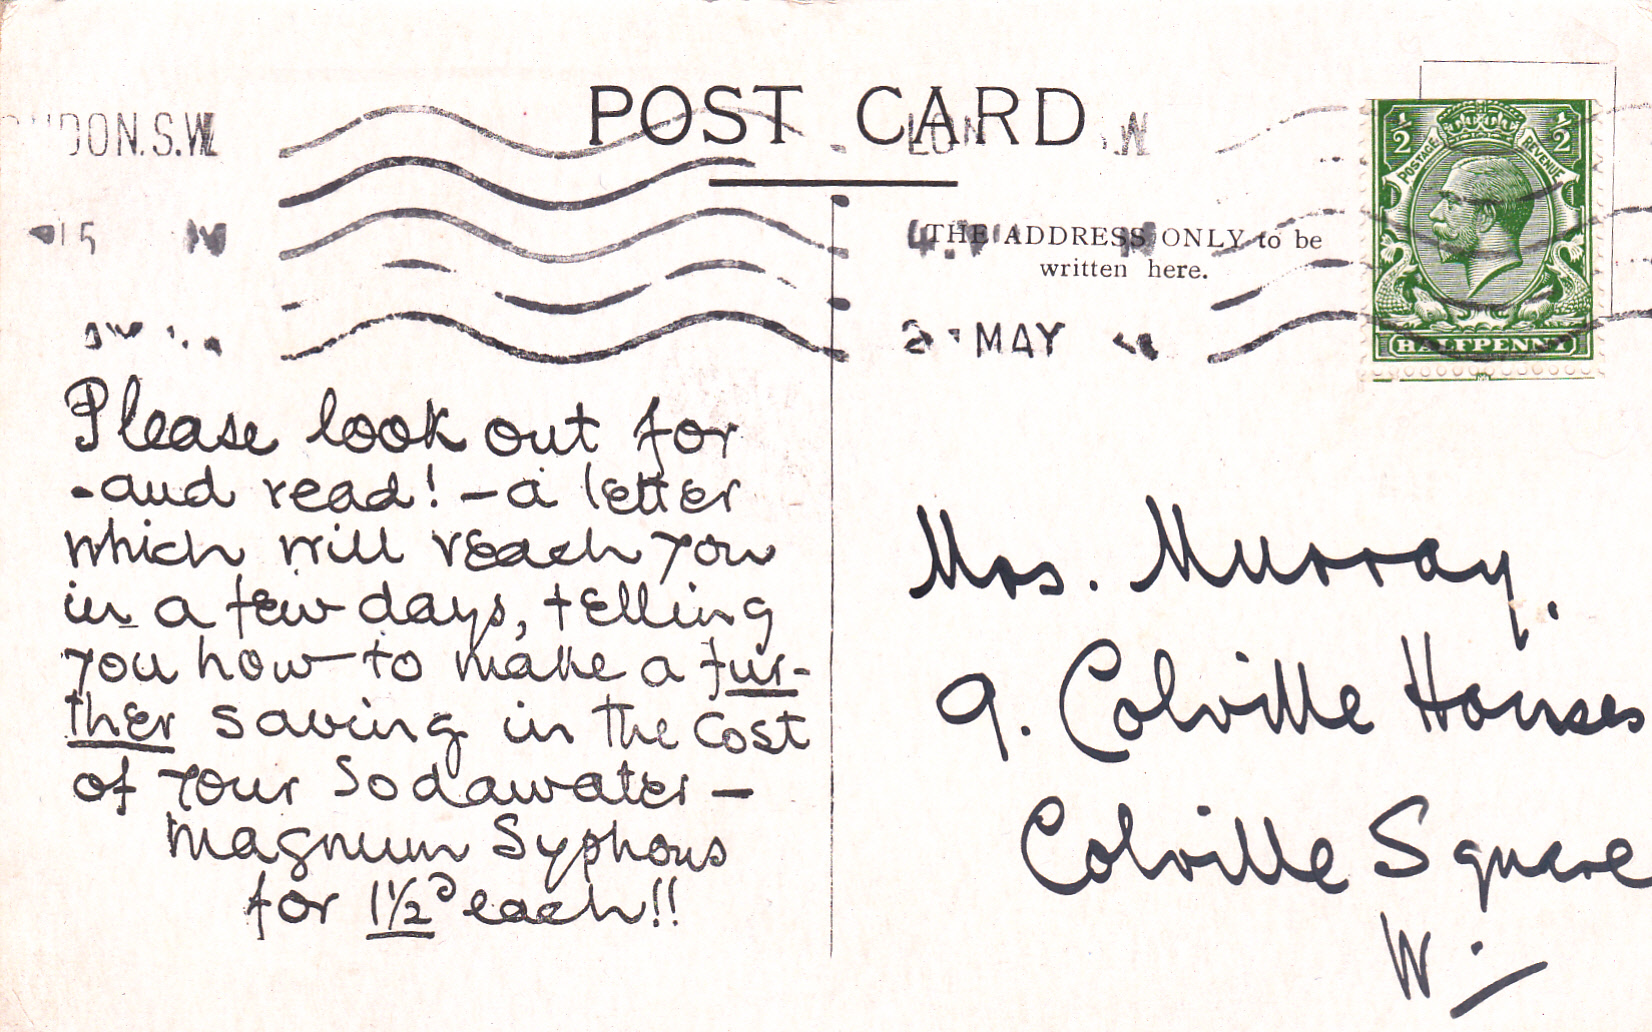 POST CARD
LONDON.S.W
THE ADDRESS ONLY to be
written here.
MAY
½ ½
POSTAGE REVENUE
HALFPENNY
Please look out for
-and read! - a letter
which will reach you
in a few days, telling
you how to make a fur-
ther saving in the cost
of your Sodawater -
Magnum Syphons
for 1½ᵈ each!!
Mrs. Murray.
9. Colville Houses
Colville Square
W.